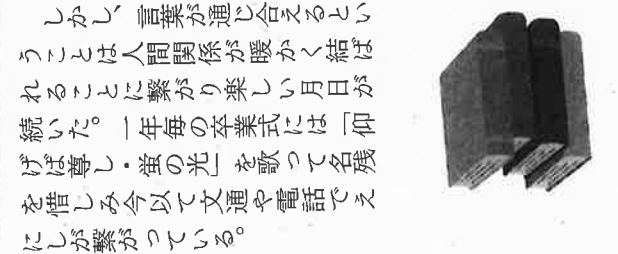 しかし、言葉が通じ合えるとい
うことは人間関係が暖かく結ば
れることに繋がり楽しい月日が
続いた。一年毎の卒業式には「仰
げば尊し・蛍の光」を歌って名残
を惜しみ今以て文通や電話でえ
にしが繋がっている。